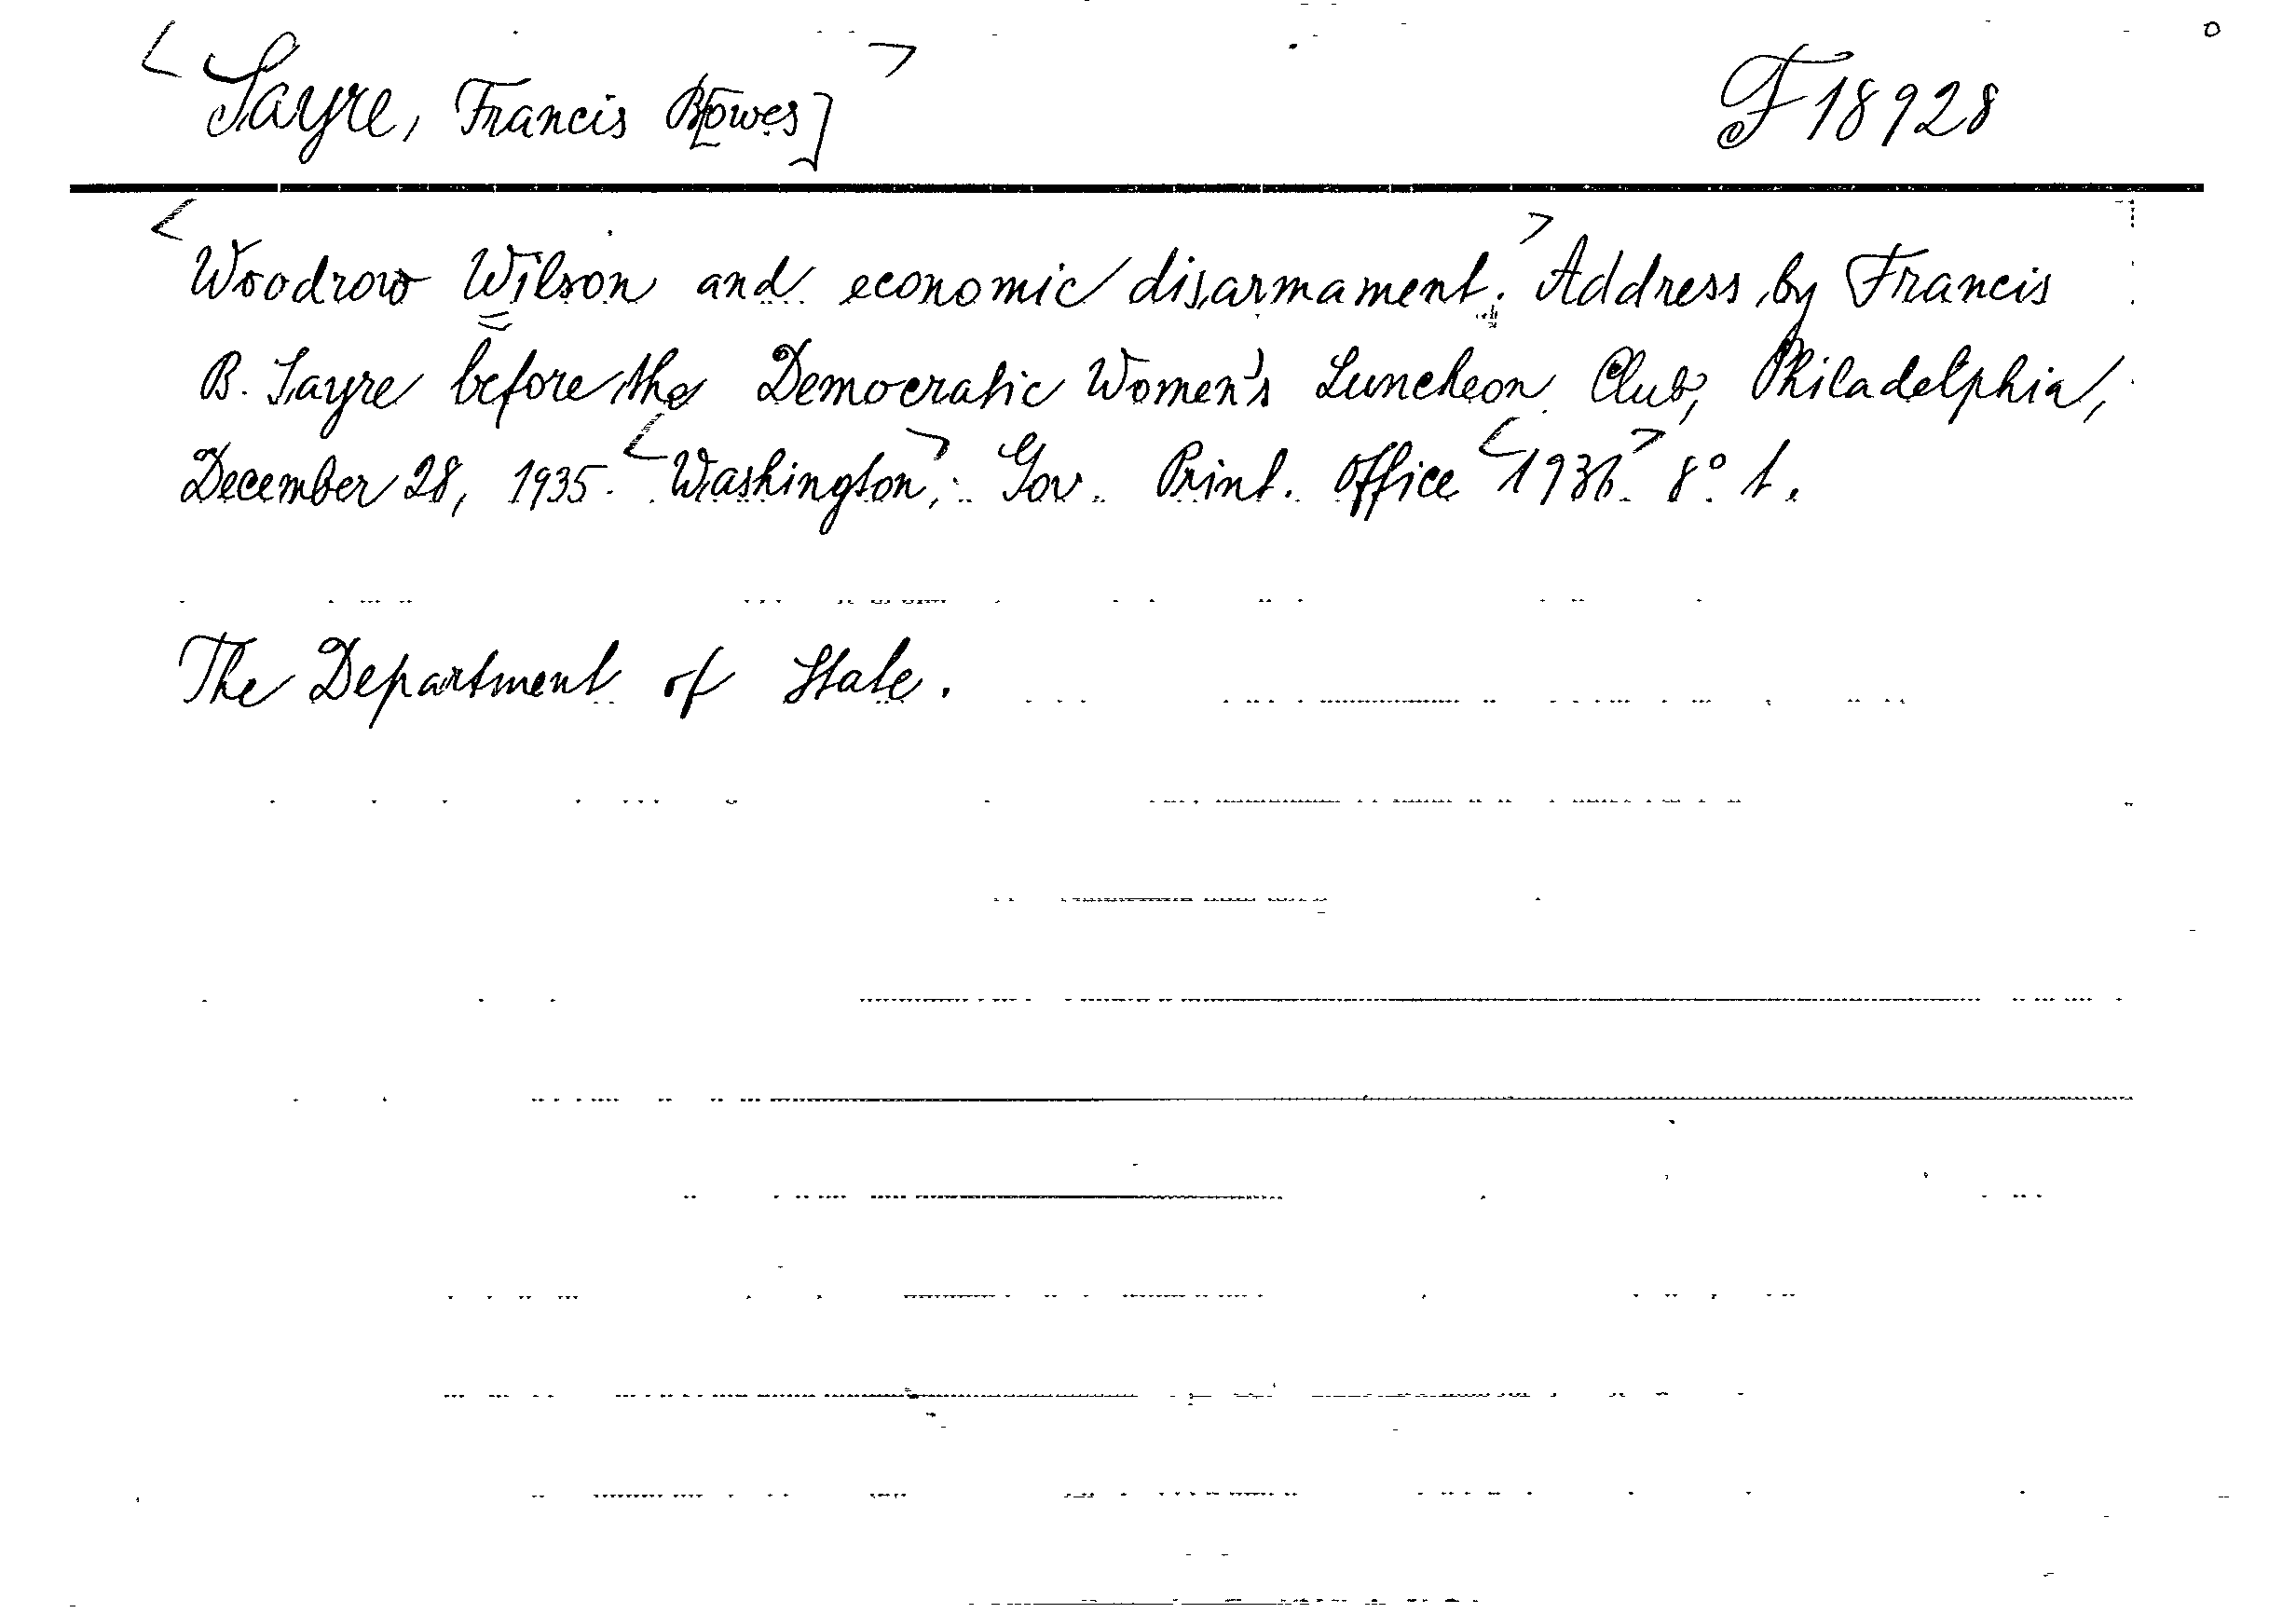 <Sayre, Francis B[owes]> F18928
<Woodrow Wilson and economic disarmament.> Address by Francis
B. Sayre before the Democratic Women's Luncheon Club, Philadelphia,
December 28, 1935. <Washington>: Gov. Print. Office <1936>. 8° t.
The Department of State.